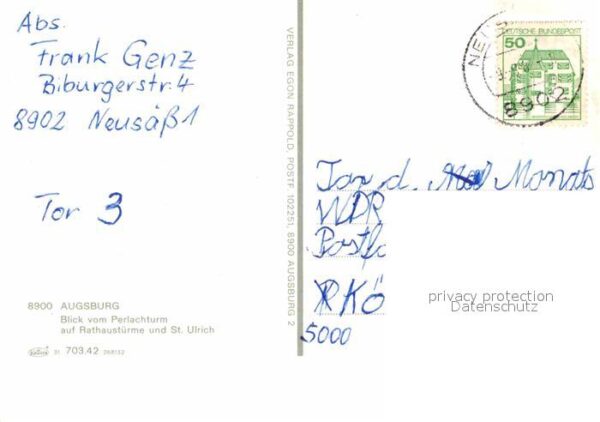 Abs.
Frank Genz
Biburgerstr. 4
8902 Neusäß 1
Tor 3
8900 AUGSBURG
Blick vom Perlachturm
auf Rathaustürme und St. Ulrich
31 703.42 268132
VERLAG EGON RAPPOLD, POSTF. 102251, 8900 AUGSBURG 2
50
DEUTSCHE BUNDESPOST
8902
Tor d. Monats
WDR
Postf
Kö
5000
privacy protection
Datenschutz